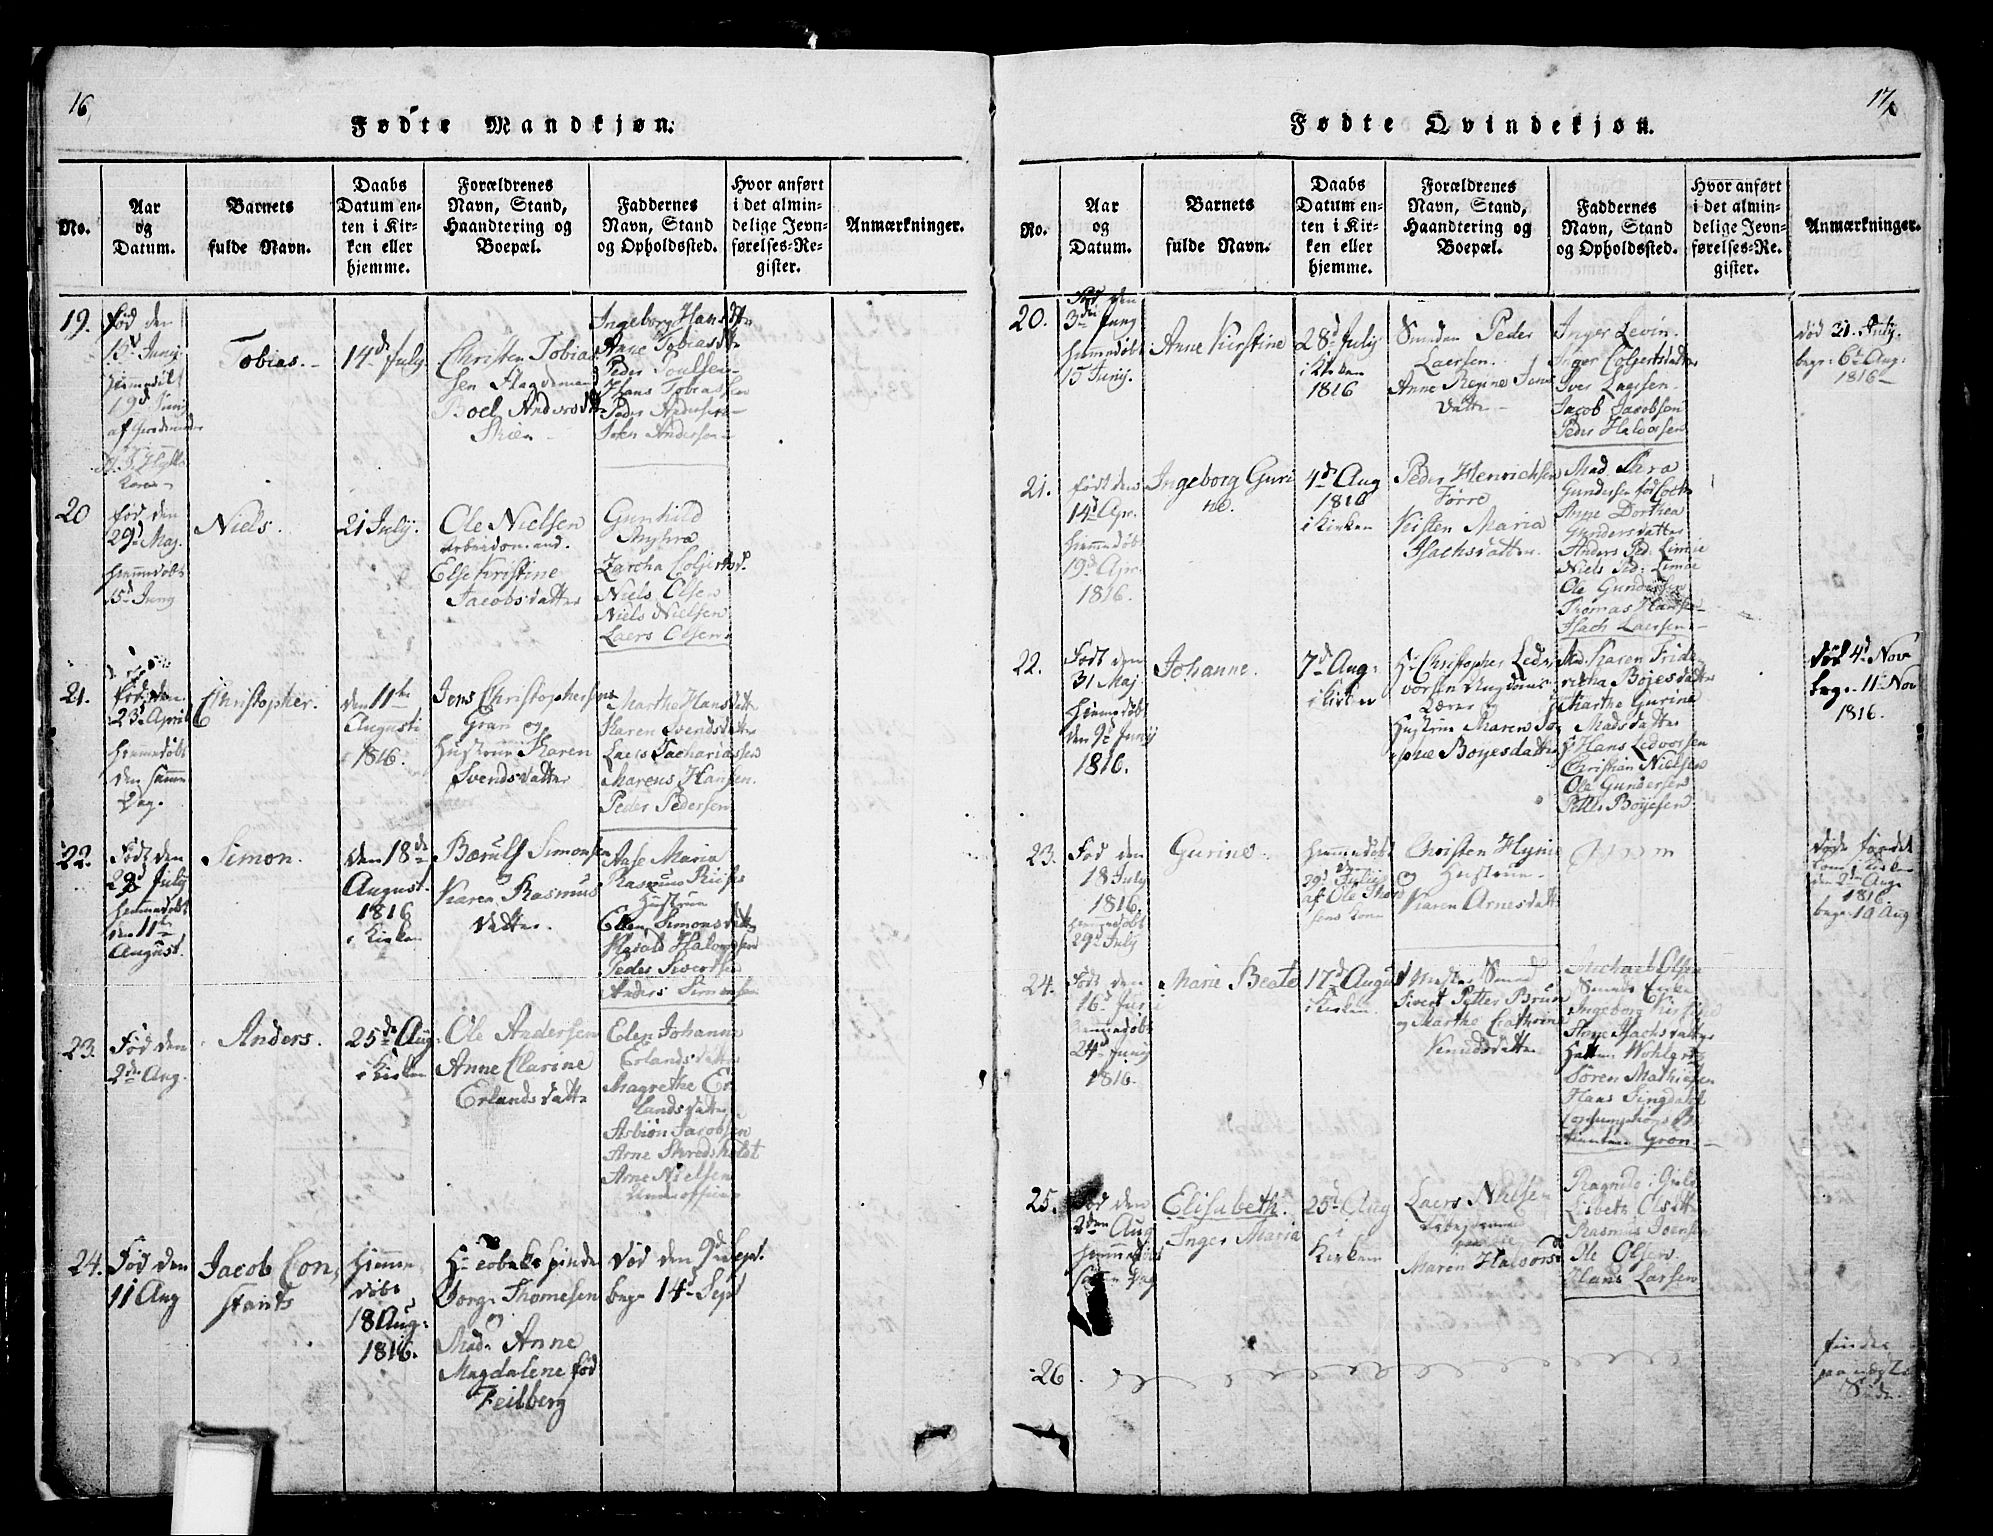 16.
Fødte Mandkjøn.
No.
Aar
og
Datum.
Barnets
fulde Navn.
Daabs
Datum en-
ten i Kir-
ken eller
hjemme.
Forældrenes
Navn, Stand,
Haandtering og
Boepæl.
Faddernes
Navn, Stand
og Opholdssted.
Hvor anført
i det almin-
delige Jevn-
førelses-Re-
gister.
Anmærkninger.
19.
Fød den
Tobias.
14d July
Christen Tobia
sen
Boel Andersdtr
Skien
Ingeborg Hansdtr
Anne Tobiasdtr
Peder Poulsen
Hans Tobiassen
Peder Andersen
Andersen
20
Fød den
29d Maj
hiemmedøbt
15d Juny
Niels.
21 July
Ole Nielsen
Arbeidsmand.
Else Kirstine
Jacobsdatter
Gunhild
Niels Olsen
Niels Nielsen
Laers Olsen
21.
Fød den
23d April
hiemmedøbt
den samme
Dag.
Christopher.
den 11te
Augusti
1816.
Jens Christophersen
Gran og
Hustrue Karen
Svendsdatter
Marthe Hansdatt
Karen Svendsdatt
Laers Zachariassen
Marcus Hansen.
Peder Pedersen
22.
Født den
29d July
hiemmedøbt
den 11te
August.
Simon.
den 18de
August.
1816
i Kirken
Bærulf Simonsen
Karen Rasmus
datter.
Aase Maria
Hustrue
Ellen Simonsdatter
Harald Halvorsen
Peder Sivertsen
Anders Simonsen
23.
Fød den
2den Aug.
Anders.
25de Aug.
i Kirken
Ole Andersen
Anne Clarine
Erlandsdatter
Elen Johanne
Erlandsdatter
Magrethe Er
landsdatter
Asbiøn Jacobsen
Arne Skredsholdt
Arne Nielsen
Underofficier
24.
Fød den
11 Aug
Jacob Con
stants
hiemme
døbt
18 Aug:
1816.
Jørg. Thomesen
og
Mad. Anne
Magdalene fød
Feilberg
død den 9d Sept.
begr. 14 Sept
17.
Fødte Qvindekjøn.
No.
Aar
og
Datum.
Barnets
fulde Navn.
Daabs
Datum en-
ten i Kir-
ken eller
hjemme.
Forældrenes
Navn, Stand,
Haandtering og
Boepæl.
Faddernes
Navn, Stand
og Opholdssted.
Hvor anført
i det almin-
delige Jevn-
førelses-Re-
gister.
Anmærkninger.
20.
Fød den
3die Juny
hiemmedøbt
15 Junij.
Anne Kirstine
28d July
i Kirken
1816
Smeden Peder
Laersen.
Anne Regine Jens
datter
Inger Levin.
Inger Colbjørnsdatter
Iver Laersen.
Jacob Jacobsen
Peder Halvorsen
død 31 July.
begr. 6d Aug:
1816
21.
Født den
14d Apr.
hiemmedøbt
19d Apr.
1816.
Ingeborg Guri
ne.
4d Aug
1816
i Kirken
Peder Henrichsen
Førre
Kisten Maria
Isachsdatter.
Mad Sara
Gundersen fød
Anne Dorthea
Gundersdatter
Anders Ped. Limie
Niels Ped. Limie
Ole Gundersen
Thomas Hansen
Isach Laersen
22.
Født den
31 Maj
hiemmedøbt
den 9d Junij
1816.
Johanne.
7d Aug:
i Kirken
Hr Christopher Led
vorsen Ungdoms
Lærer og
Hustrue Maren So
phie Boyesdatter
Mad. Karen Fride
richa Bojesdatter
Marthe Gurine
Madsdatter
Hr Hans Ledvorsen
Christian Nielsen
Ole Gundersen
Petter Boyesen
død 4d Nov
begr. 11 Nov
1816.
23.
Fød den
18 July
1816.
hiemmedøbt
29d July
Gurine.
hiemmedøbt
den
29d Julii
af Ole Thor
sens Kone
Christen Hynie
og Hustrue
Karen Arnesdatter
døde førend det
kom i Kirken
den 2den Aug.
1816.
begr. 10 Aug
24.
Født den
16d Jun
hiemmedøbt
24d Junij
1816.
Marie Beate
17d Aug
i Kirken
Mester Smed
Sivert Petter Bruun
og Marthe Cathrine
Knudsdatter
Michael Olsen
Smeds Enke
Ingeborg Kirstine
Anne Isachsdatter
Søren Mathiesen
Hans Singdalsen
Consumptions B
tienten Grøn.
25.
Fød den
2den Aug
hiemmedøbt
samme Dag
Elisabeth.
Inger Maria
25d Aug
i
Kirken
Laers Nielsen
Arbeidsmand
Maren Halvorsd
Ragnild
Lisbeth Olsdtr
Rasmus Joensen
Ole Olsen.
Hans Larsen
26.
findes
paa næste
Side.